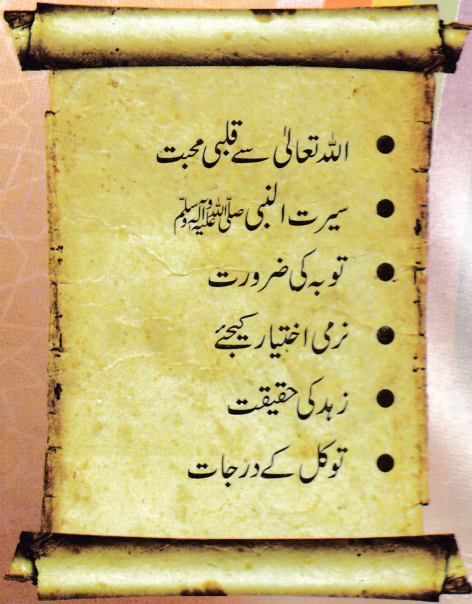 • اللہ تعالیٰ سے قلبی محبت
• سیرت النبی صلی اللہ علیہ وآلہ وسلم
• توبہ کی ضرورت
• نرمی اختیار کیجئے
• زہد کی حقیقت
• توکل کے درجات